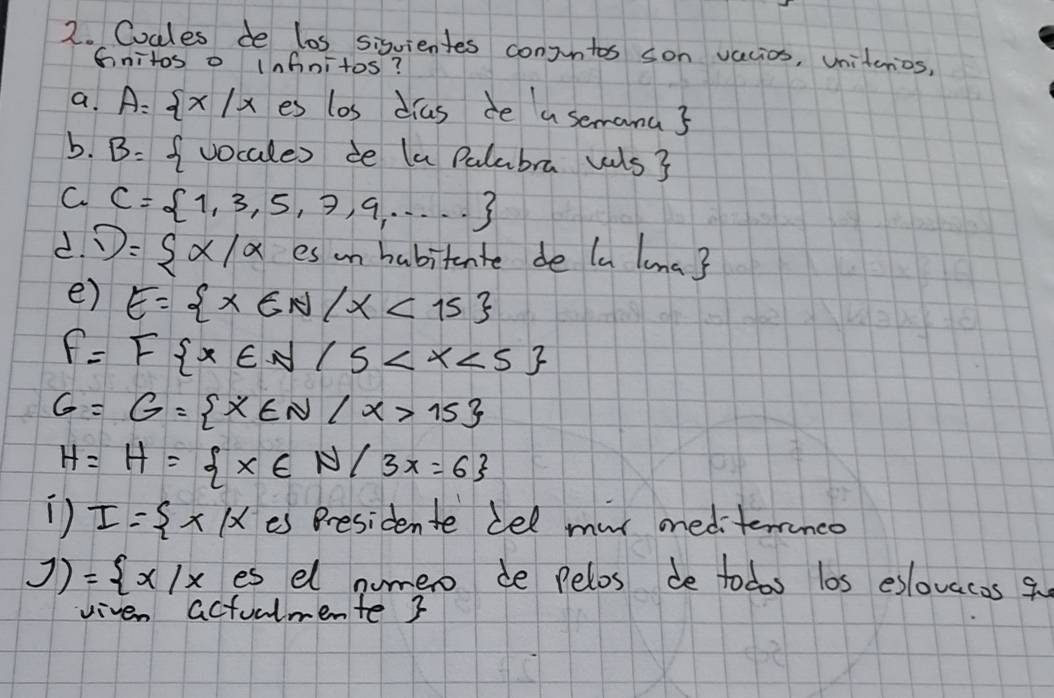 2. Cuales de los siguientes conjuntos son vacios, unitarios,
finitos o infinitos?
a. A= {x/x es los días de la semana}
b. B= {vocales de la Palabra vals}
C. C={1, 3, 5, 7, 9, .....}
d. D= {x/x es un habitante de la luna}
e) E= {x ∈ N / x < 15}
f= F {x ∈ N / 5 < x < 5}
G= G= {x ∈ N / x > 15}
H= H = {x ∈ N / 3x = 6}
i) I={x/x es Presidente del mar mediterraneo
J)= {x/x es el numero de pelos de todos los eslovacos que
viven actualmente}